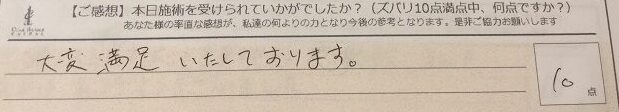 【ご感想】本日施術を受けられていかがでしたか？（ズバリ10点満点中、何点ですか？）
あなた様の率直な感想が、私達の何よりの力となり今後の参考となります。是非ご協力お願いします
大変満足いたしております。
10点